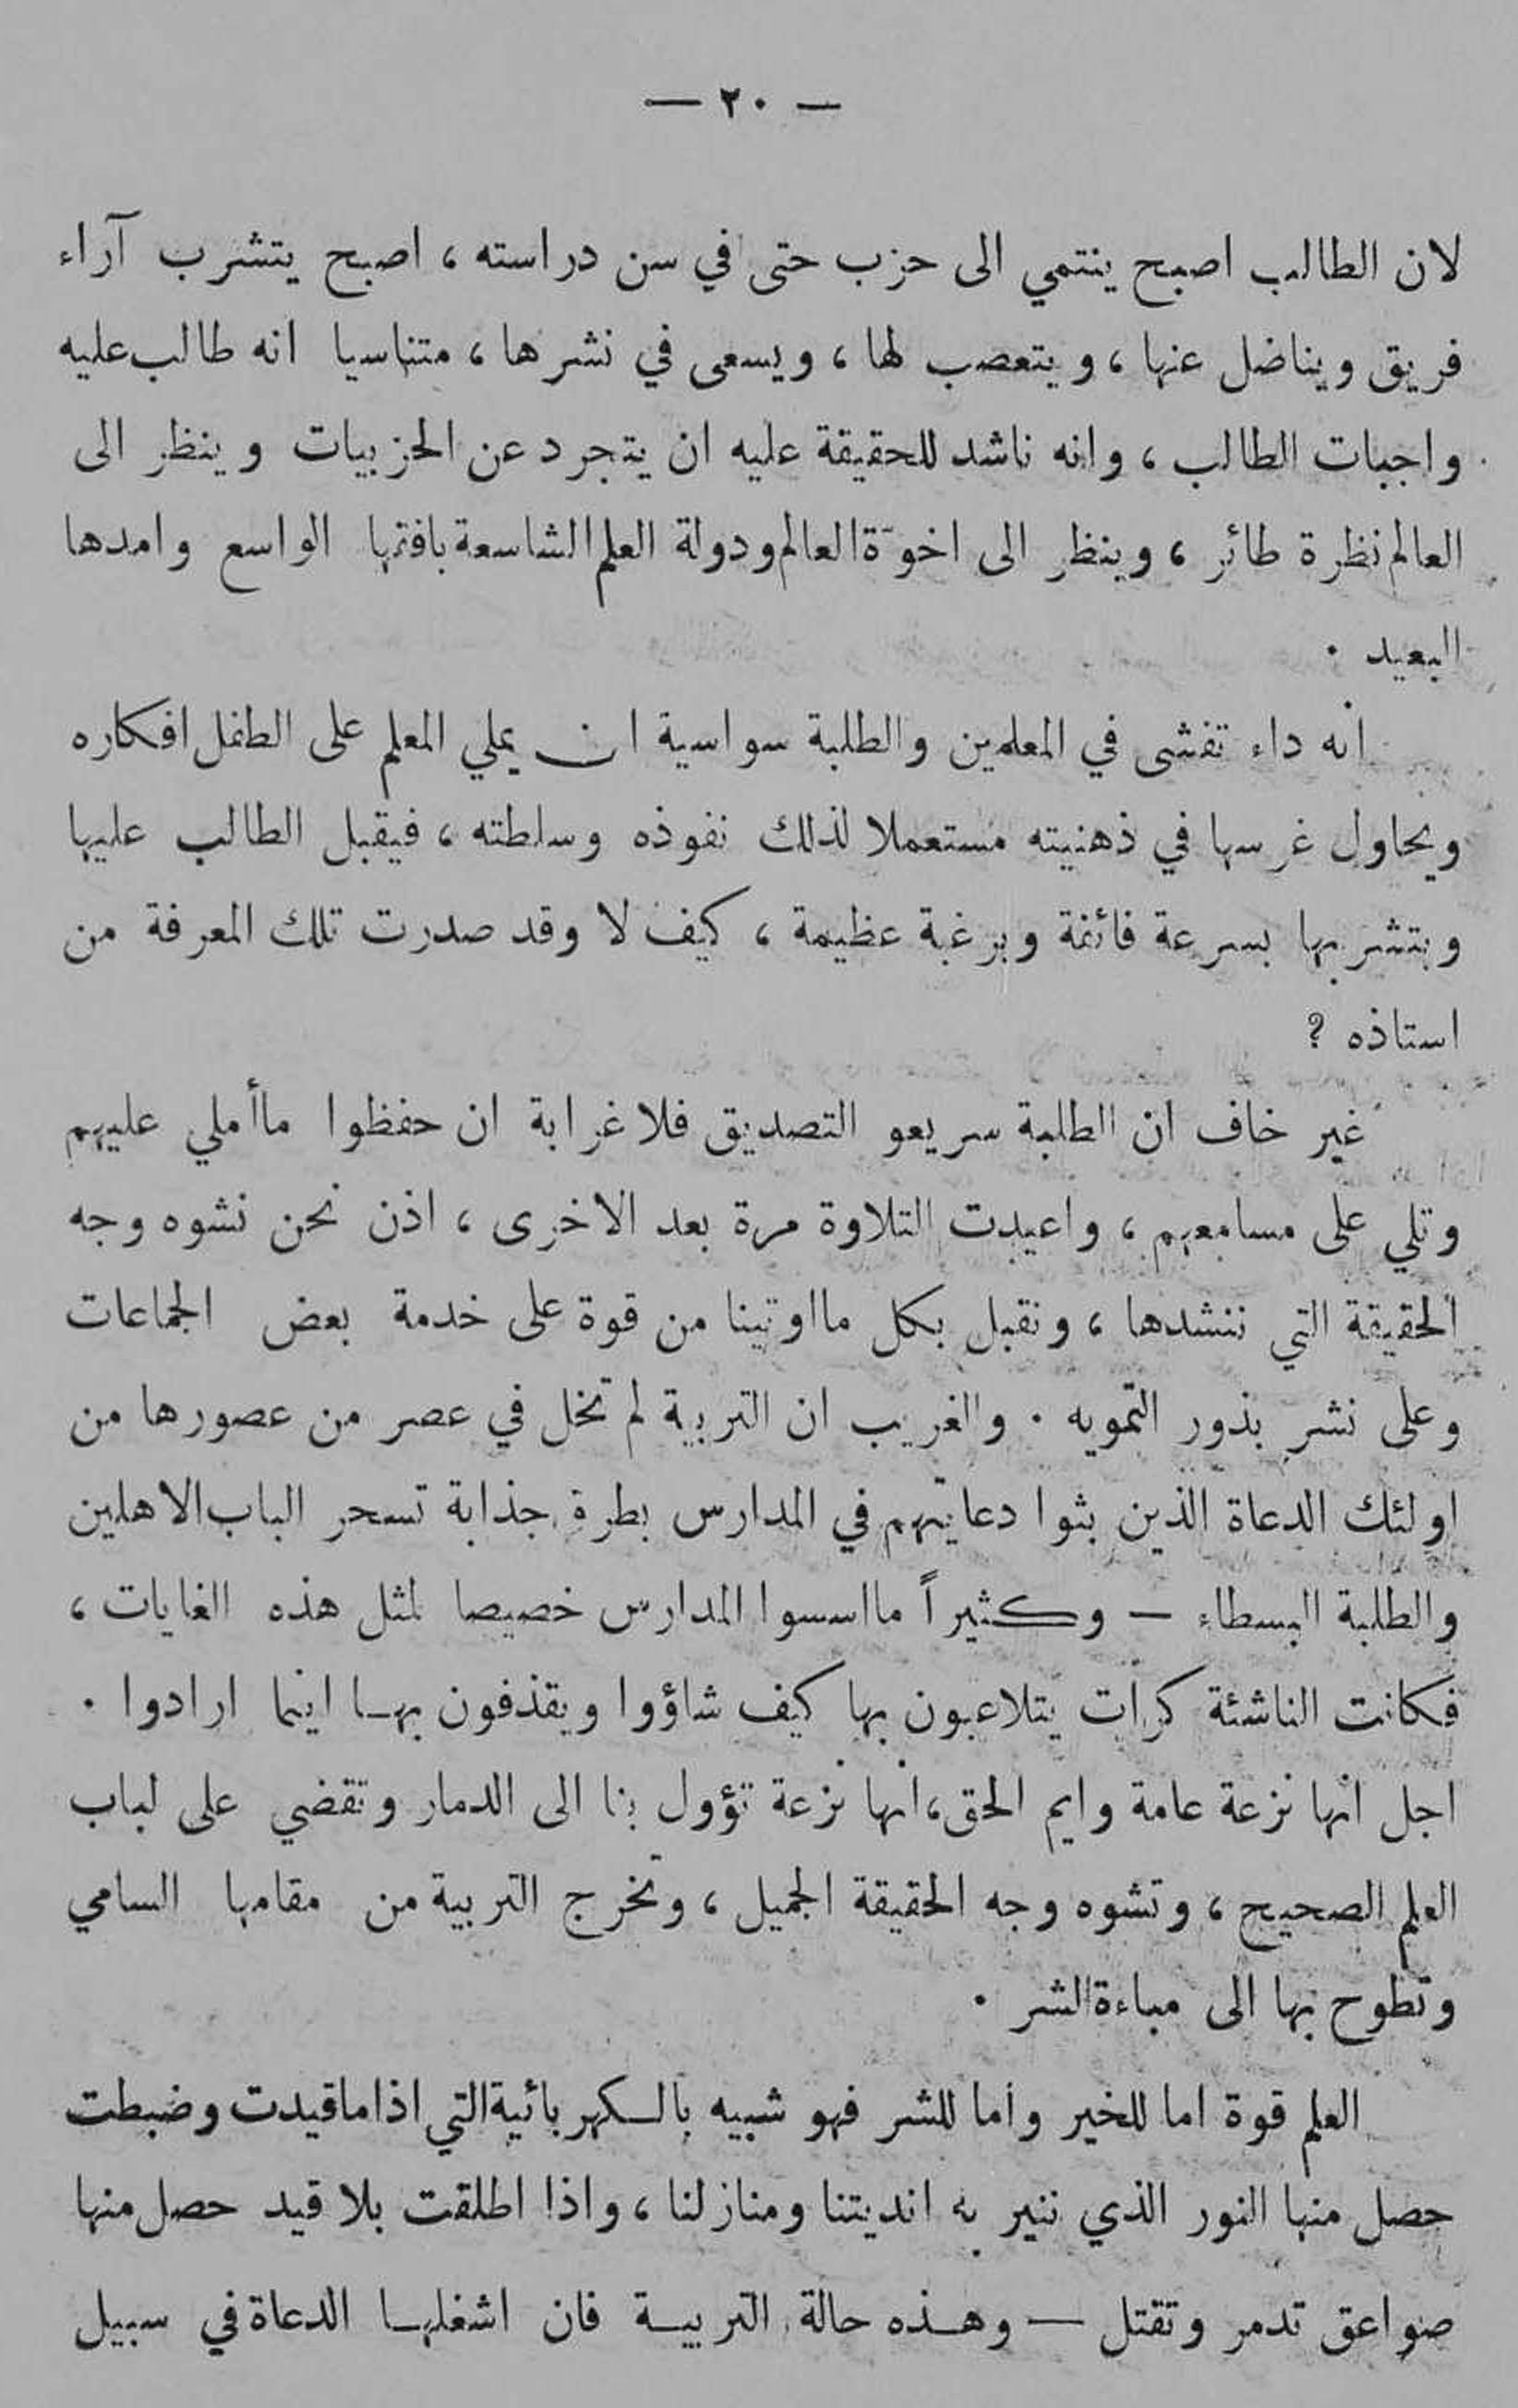 — ٢٠ —
لان الطالب اصبح ينتمي الى حزب حتى في سن دراسته ، اصبح يتشرب آراء
فريق ويناضل عنها ، ويتعصب لها ، ويسعى في نشرها ، متناسيا انه طالب عليه
واجبات الطالب ، وانه ناشد للحقيقة عليه ان يتجرد عن الحزبيات وينظر الى
العالم نظرة طائر ، وينظر الى اخوّة العالم ودولة العلم الشاسعة بافقها الواسع وامدها
البعيد .
انه داء تفشى في المعلمين والطلبة سواسية ان يملي المعلم على الطفل افكاره
ويحاول غرسها في ذهنيته مستعملا لذلك نفوذه وسلطته ، فيقبل الطالب عليها
ويتشربها بسرعة فائقة وبرغبة عظيمة ، كيف لا وقد صدرت تلك المعرفة من
استاذه ؟
غير خاف ان الطلبة سريعو التصديق فلا غرابة ان حفظوا ماأملي عليهم
وتلي على مسامعهم ، واعيدت التلاوة مرة بعد الاخرى ، اذن نحن نشوه وجه
الحقيقة التي ننشدها ، ونقبل بكل مااوتينا من قوة على خدمة بعض الجماعات
وعلى نشر بذور التمويه . والغريب ان التربية لم تخل في عصر من عصورها من
اولئك الدعاة الذين بثوا دعايتهم في المدارس بطرق جذابة تسحر الباب الاهلين
والطلبة البسطاء — وكثيراً مااسسوا المدارس خصيصا لمثل هذه الغايات ،
فكانت الناشئة كرات يتلاعبون بها كيف شاؤوا ويقذفون بها اينما ارادوا .
اجل انها نزعة عامة وايم الحق ، انها نزعة تؤول بنا الى الدمار وتقضي على لباب
العلم الصحيح ، وتشوه وجه الحقيقة الجميل ، وتخرج التربية من مقامها السامي
وتطوح بها الى مباءة الشر .
العلم قوة اما للخير وأما للشر فهو شبيه بالكهربائية التي اذا ماقيدت وضبطت
حصل منها النور الذي ننير به انديتنا ومنازلنا ، واذا اطلقت بلا قيد حصل منها
صواعق تدمر وتقتل — وهذه حالة التربية فان اشغلها الدعاة في سبيل